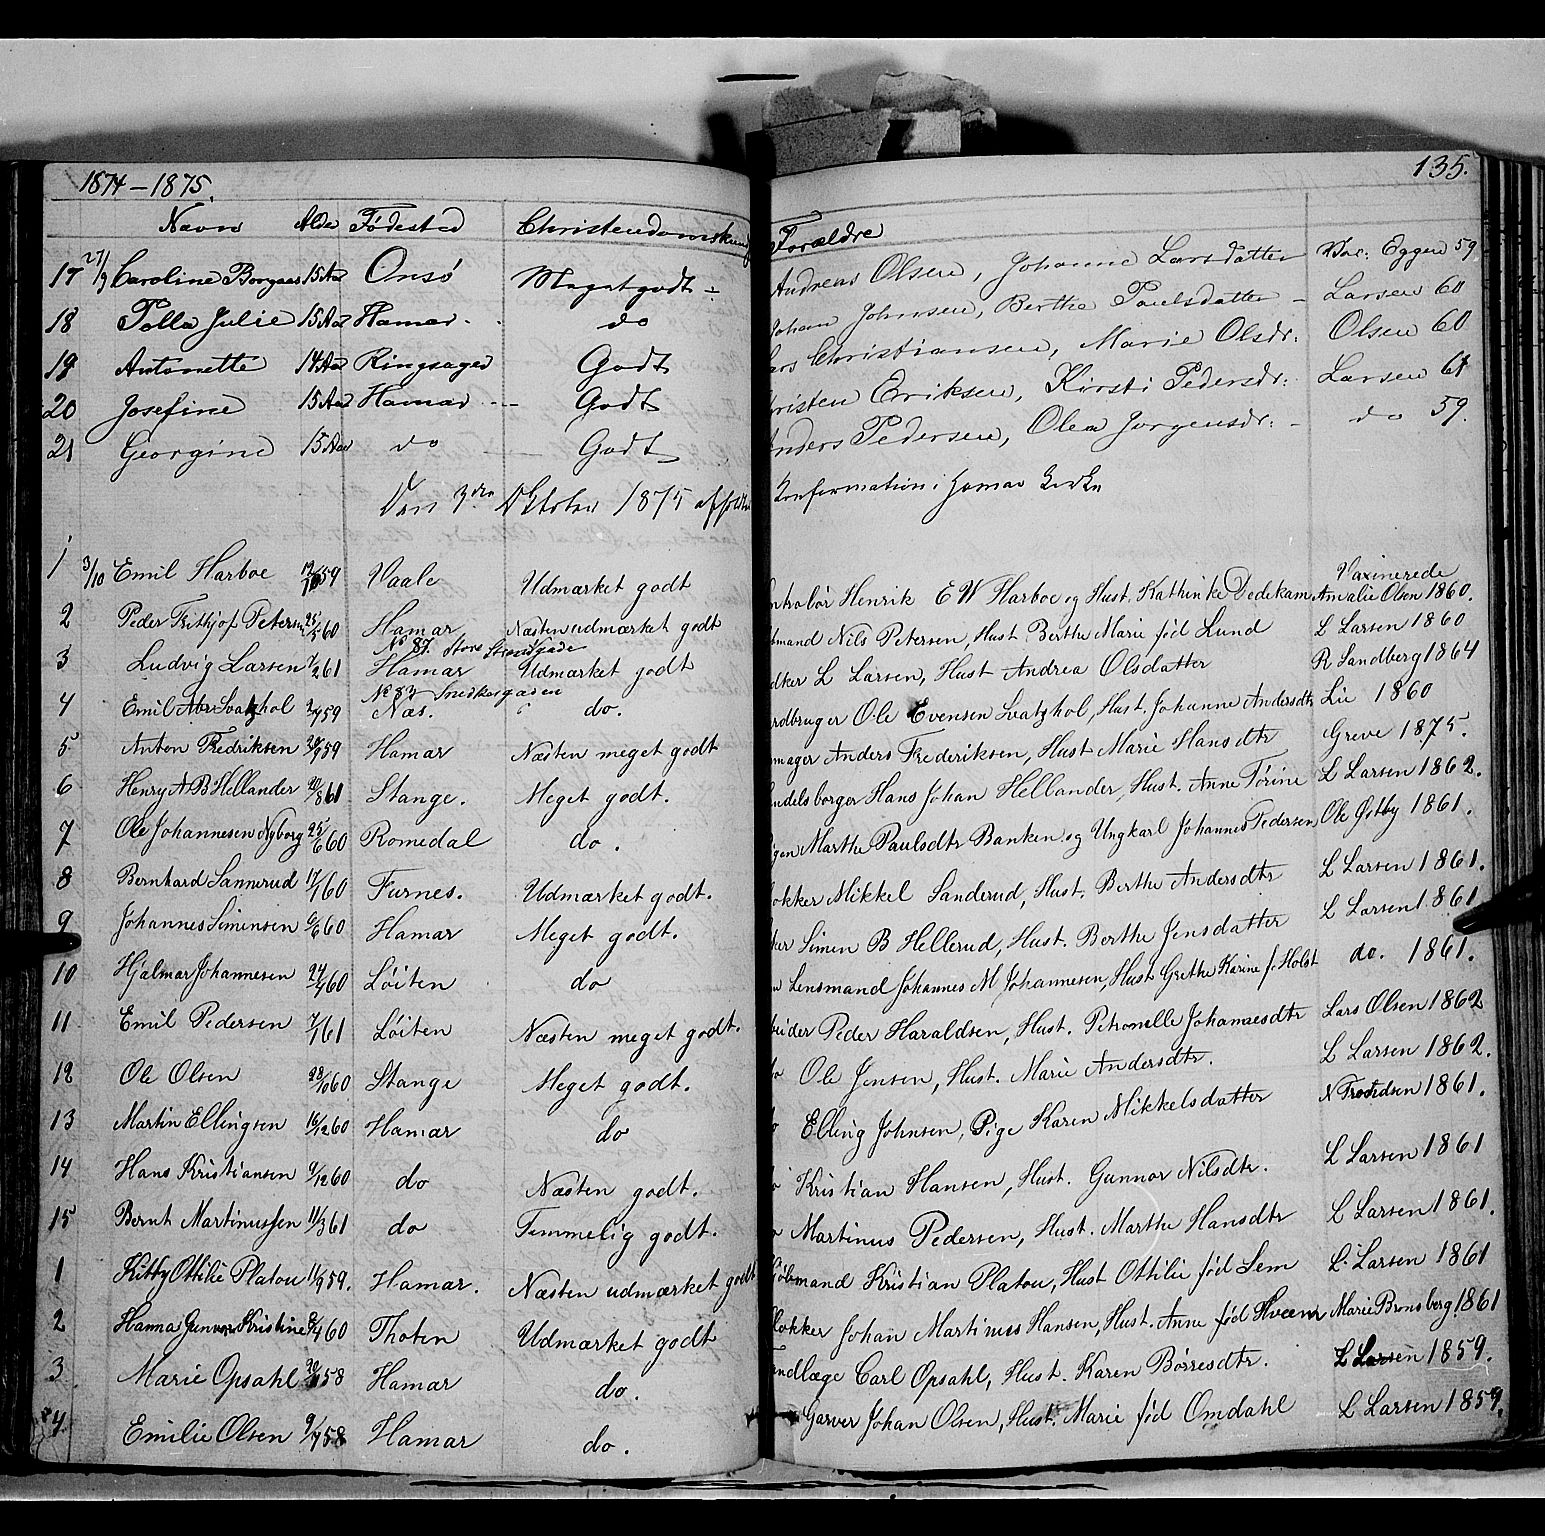 1874 – 1875.
135.
Navn Alder Fødested Christendomskundsk Forældre
17 27/9 Caroline Borgaas 15 Aar Onsø Meget godt ÷ Andreas Olsen, Johanne Larsdatter Vac: Eggen 59
18 Polla Julie 15 Aar Hamar. do Johan Johnsen, Berthe Paulsdatter – Larsen 60
19 Antonette 14 Aar Ringsager Godt Lars Christiansen, Marie Olsdr: Olsen 60
20 Josefine 15 Aar Hamar – Godt Kristen Eriksen, Kirsti Pedersdr: Larsen 61
21 Georgine 15 Aar do — Godt Anders Pedersen, Olea Jorgensdr: – do 59.
Den 3die Oktober 1875 afholdtes Konfirmation i Hamar Kirke
Vaxinerede
1 3/10 Emil Harboe 59 Vaale Udmærket godt ntrolør Henrik E W Harboe og Hust. Kathinke Dedekam Amalie Olsen 1860.
2 Peder Fritjof Petersen 25/5 60 Hamar Næsten udmærket godt mand Nils Petersen, Hust. Berthe Marie fød Lund L Larsen 1860
No 87. Store Strandgade
3 Ludvig Larsen 7/2 61 Hamar Udmærket godt dker L Larsen, Hust Andrea Olsdatter R Sandberg 1864
No 83 Snedkergaden
4 Emil Svatzhol 59 Næs. do. rdbruger Ole Evensen Svatzhol, Hust. Johanne Andersdtr Lie 1860
5 Anton Fredriksen 59 Hamar Næsten meget godt mager Anders Frederiksen, Hust Marie Hansdtr Greve 1875.
6 Henry A B Hellander 20/8 61 Stange. Meget godt. ndelsborger Hans Johan Hellander, Hust. Anne Torine L Larsen 1862.
7 Ole Johannesen Nyborg 25/6 60 Romedal do. igen Marthe Paulsdtr Banken og Ungkarl Johannes Pedersen Ole Østby 1861.
8 Bernhard Sannerud 17/1 60 Furnes. Udmærket godt. okker Mikkel Sanderud, Hust. Berthe Andersdtr L Larsen 1861.
9 Johannes Simensen 6/6 60 Hamar Meget godt. ker Simen B Hellerud, Hust. Berthe Jensdatter L Larsen 1861
10 Hjalmar Johannesen 60 Løiten do Lensmand Johannes M Johannesen, Hust. Grethe Karine f. Holst do. 1861.
11 Emil Pedersen 7/1 61 Løiten Næsten meget godt. beider Peder Haraldsen, Hust. Petronelle Johannesdtr Lars Olsen 1862
12 Ole Olsen 28/10 60 Stange Meget godt. do Ole Jensen, Hust. Marie Andersdtr. L Larsen 1862.
13 Martin Ellingsen 16/12 60 Hamar do Elling Johnsen, Pige Karen Mikkelsdatter 1861.
14 Hans Kristiansen 9/12 60 do Næsten godt. Kristian Hansen, Hust. Gunnor Nilsdtr. L Larsen 1861
15 Bernt Martinussen 11/3 61 do Temmelig godt. Martinus Pedersen, Hust. Marthe Hansdtr L Larsen 1861.
1 Kitty Ottilie Platou 11/9 59. Hamar. Næsten udmærket godt Kjøbmand Kristian Platou, Hust Ottilie fød Sem L. Larsen 1861
2 Hanna Gunvor Kristine 8/4 60 Thoten Udmærket godt lokker Johan Martinus Hansen, Hust. Anne fød Kværn Marie Bronsberg 1861
3 Marie Opsahl 58 Hamar do. Tandlæge Carl Opsahl, Hust. Karen Børresdtr. L Larsen 1859.
4. Emilie Olsen 9/7 58 Hamar do. Garver Johan Olsen, Hust. Marie fød Omdahl L Larsen 1859.